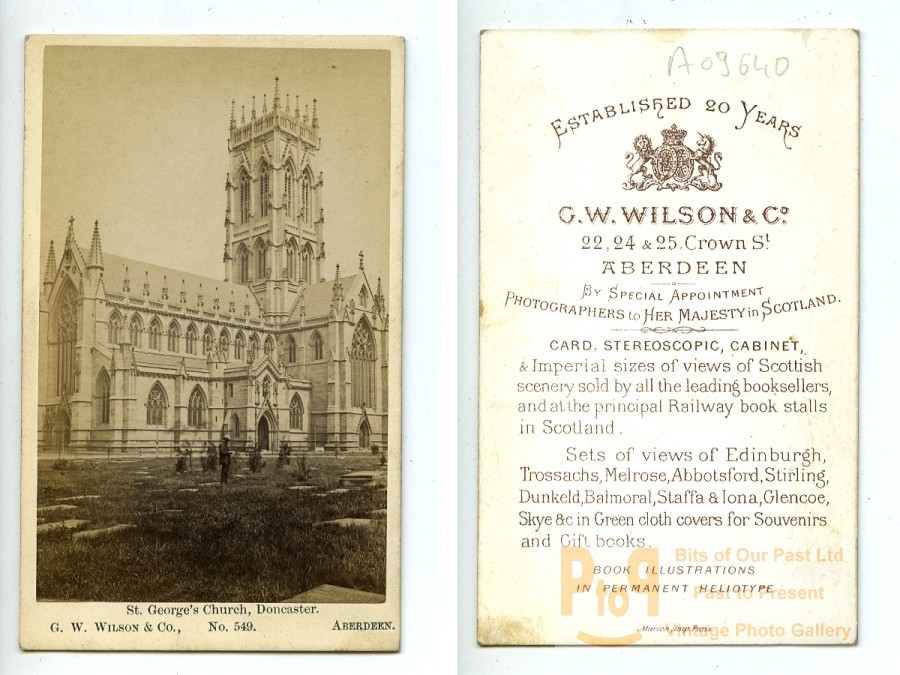 St. George's Church, Doncaster.
G. W. WILSON & CO., No. 549. ABERDEEN.
A09640
ESTABLISHED 20 YEARS
G. W. WILSON & Co.
22, 24 & 25, Crown St.
ABERDEEN
BY SPECIAL APPOINTMENT
PHOTOGRAPHERS to HER MAJESTY in SCOTLAND.
CARD, STEREOSCOPIC, CABINET,
& Imperial sizes of views of Scottish
scenery sold by all the leading booksellers,
and at the principal Railway book stalls
in Scotland.
Sets of views of Edinburgh,
Trossachs, Melrose, Abbotsford, Stirling,
Dunkeld, Balmoral, Staffa & Iona, Glencoe,
Skye &c in Green cloth covers for Souvenirs
and Gift books.
BOOK ILLUSTRATIONS
IN PERMANENT HELIOTYPE
Marion Imp. Paris
PtoP
Bits of Our Past Ltd
Past to Present
Vintage Photo Gallery